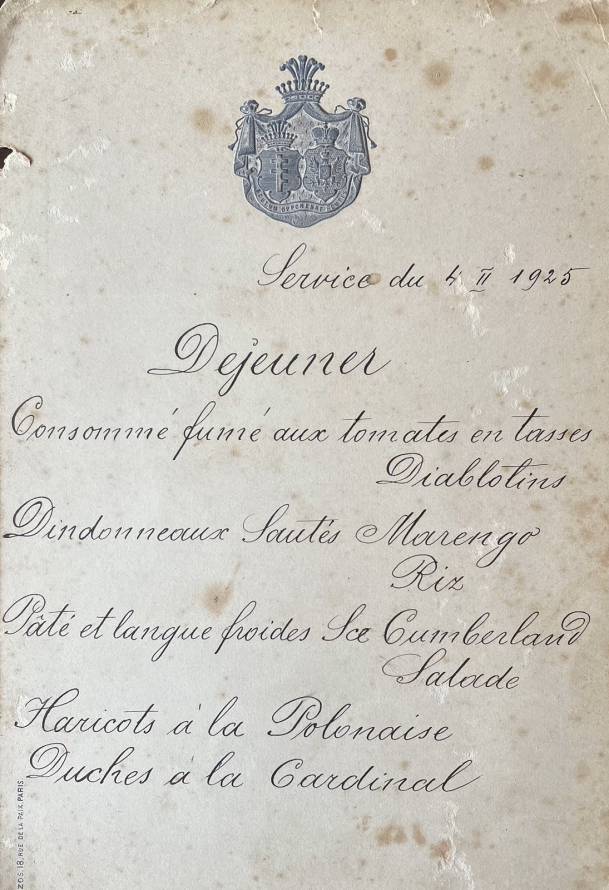 OPPONEBAT
Service du 4 II 1925
Dejeuner
Consommé fumé aux tomates en tasses
Diablotins
Dindonneaux Sautés Marengo
Riz
Pâté et langue froides Sce Cumberland
Salade
Haricots à la Polonaise
Duches à la Cardinal
18, RUE DE LA PAIX, PARIS